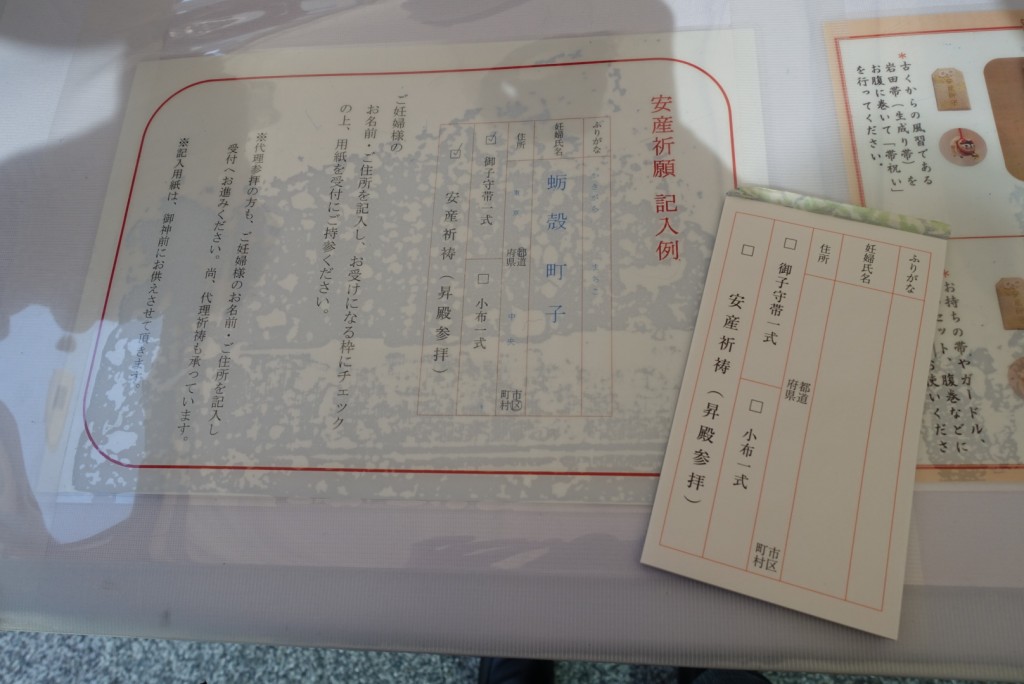 安産祈願 記入例
ふりがな
妊婦氏名
蛎殻町子
住所
都道
府県
市区
町村
御子守帯一式
小布一式
安産祈祷(昇殿参拝)
ご妊婦様の
お名前・ご住所を記入し、お受けになる枠にチェック
の上、用紙を受付にご持参ください。
※代理参拝の方も、ご妊婦様のお名前・ご住所を記入し
受付へお進みください。尚、代理祈祷も承っています。
※記入用紙は、御神前にお供えさせて頂きます。
ふりがな
妊婦氏名
住所
都道
府県
市区
町村
□ 御子守帯一式
□ 小布一式
□ 安産祈祷(昇殿参拝)
*古くからの風習である
岩田帯(生成り帯)を
お腹に巻いて「帯祝い」
を行ってください。
*お持ちの帯やガードル、
腹巻などに